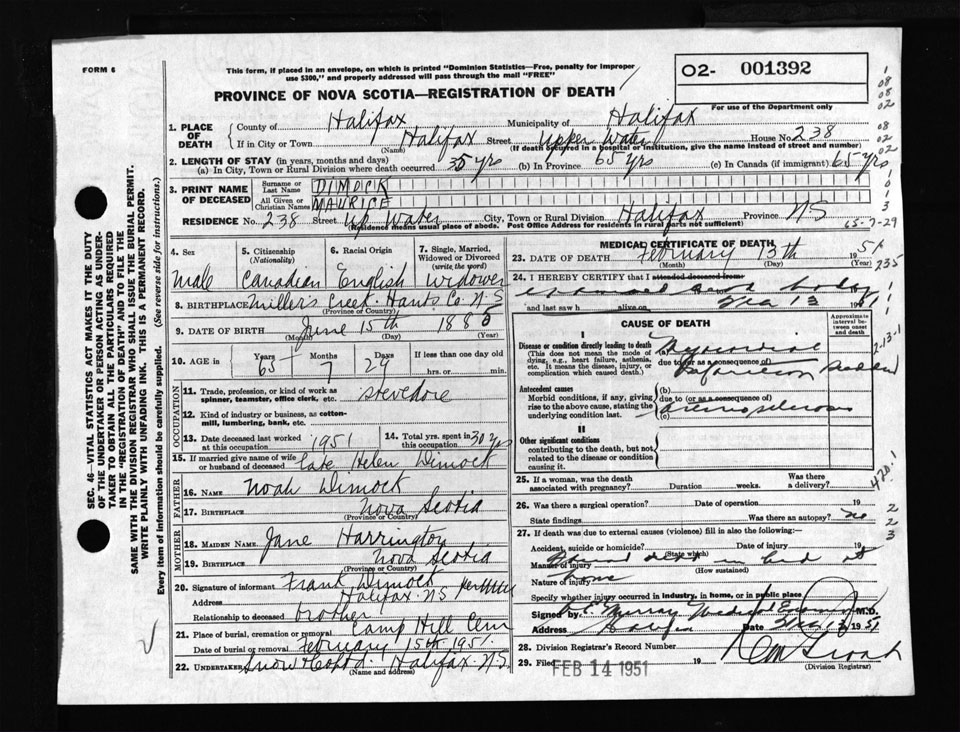 FORM 6
This form, if placed in an envelope, on which is printed "Dominion Statistics—Free, penalty for improper
use $300," and properly addressed will pass through the mail "FREE"
PROVINCE OF NOVA SCOTIA—REGISTRATION OF DEATH
02- 001392
For use of the Department only
1. PLACE OF DEATH
County of Halifax Municipality of Halifax
If in City or Town Halifax Street Upper Water House No 238
(Name) (If death occurred in a hospital or institution, give the name instead of street and number)
2. LENGTH OF STAY (in years, months and days)
(a) In City, Town or Rural Division where death occurred 35 yrs (b) In Province 65 yrs (c) In Canada (if immigrant) 65 yrs
3. PRINT NAME OF DECEASED
Surname or Last Name DIMOCK
All Given or Christian Names MAURICE
RESIDENCE No. 238 Street Up Water City, Town or Rural Division Halifax Province NS
(Residence means usual place of abode. Post Office Address for residents in rural parts not sufficient)
65-7-29
4. Sex
male
5. Citizenship (Nationality)
Canadian
6. Racial Origin
English
7. Single, Married, Widowed or Divorced (write the word)
Widower
8. BIRTHPLACE Miller's Creek Hants Co N.S
(Province or Country)
9. DATE OF BIRTH June 15th 1885
(Month) (Day) (Year)
10. AGE in Years 65 Months 7 Days 29 If less than one day old
hrs. or min.
OCCUPATION
11. Trade, profession, or kind of work as spinner, teamster, office clerk, etc. stevedore
12. Kind of industry or business, as cotton-mill, lumbering, bank, etc.
13. Date deceased last worked at this occupation 1951
14. Total yrs. spent in this occupation 30 yrs
15. If married give name of wife or husband of deceased late Helen Dimock
FATHER
16. NAME Noah Dimock
17. BIRTHPLACE Nova Scotia
(Province or Country)
MOTHER
18. MAIDEN NAME Jane Harrington
19. BIRTHPLACE Nova Scotia
(Province or Country)
20. Signature of informant Frank Dimock
Address Halifax NS
Relationship to deceased brother
21. Place of burial, cremation or removal Camp Hill Cem
Date of burial or removal February 15th 1951
22. UNDERTAKER Snow & Co Ltd. Halifax N.S.
(Name and address)
MEDICAL CERTIFICATE OF DEATH
23. DATE OF DEATH February 13th 51
(Month) (Day) (Year)
24. I HEREBY CERTIFY that I attended deceased from
and last saw h alive on Feb 13 1951
CAUSE OF DEATH
Approximate interval between onset and death
I
Disease or condition directly leading to death
(This does not mean the mode of dying, e.g., heart failure, asthenia, etc. It means the disease, injury, or complication which caused death.)
(a) Myocardial
due to (or as a consequence of)
Infarction Sudden
Antecedent causes
Morbid conditions, if any, giving rise to the above cause, stating the underlying condition last.
(b)
due to (or as a consequence of)
(c) Arteriosclerosis
II
Other significant conditions
contributing to the death, but not related to the disease or condition causing it.
25. If a woman, was the death associated with pregnancy? Duration weeks. Was there a delivery?
26. Was there a surgical operation? Date of operation 19
State findings Was there an autopsy? no
27. If death was due to external causes (violence) fill in also the following:
Accident, suicide or homicide? Date of injury 19
(State which)
Manner of injury Found dead in bed at
(How sustained)
Nature of injury home
Specify whether injury occurred in industry, in home, or in public place
Signed by E. Murray Medical Examiner M.D.
Address Halifax Date Feb 13 1951
28. Division Registrar's Record Number
29. Filed FEB 14 1951 19
(Division Registrar)
SEC. 46—VITAL STATISTICS ACT MAKES IT THE DUTY
OF THE UNDERTAKER OR PERSON ACTING AS UNDER-
TAKER TO OBTAIN ALL THE PARTICULARS REQUIRED
IN THE "REGISTRATION OF DEATH" AND TO FILE THE
SAME WITH THE DIVISION REGISTRAR WHO SHALL ISSUE THE BURIAL PERMIT.
WRITE PLAINLY WITH UNFADING INK. THIS IS A PERMANENT RECORD.
Every item of information should be carefully supplied. (See reverse side for instructions.)
1
08
08
02
08
02
02
1
0
1
3
235
2-13-1
420.1
2
2
3